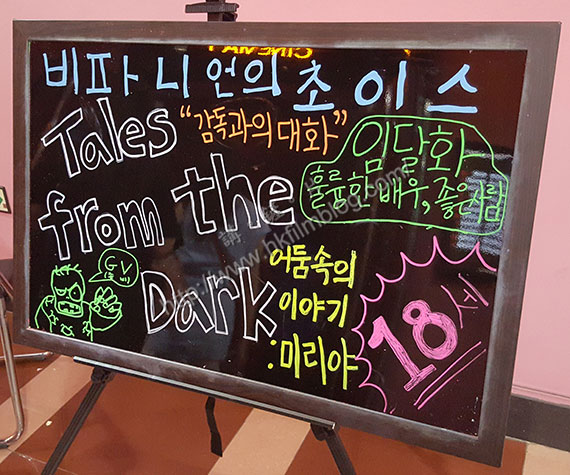 CINEMA
비파니언의 초이스
Tales
"감독과의 대화"
from the
임달화
훌륭한 배우, 좋은 사람
Dark
어둠속의
이야기
:미리야
18세
GV
http://www.hkfilmblog.com/